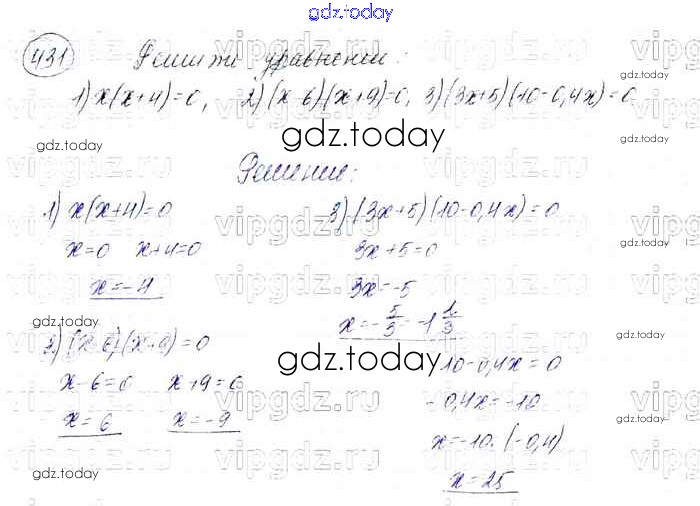 gdz.today
431 Решите уравнение:
1) x(x+4)=0, 2) (x-6)(x+9)=0, 3) (3x+5)(10-0,4x)=0
Решение:
1) x(x+4)=0
x=0 x+4=0
x=-4
2) (x-6)(x+9)=0
x-6=0 x+9=0
x=6 x=-9
3) (3x+5)(10-0,4x)=0
3x+5=0
3x=-5
x=-5/3=-1 2/3
10-0,4x=0
-0,4x=-10
x=-10:(-0,4)
x=25
gdz.today
gdz.today
gdz.today
gdz.today
gdz.today
gdz.today
gdz.today
gdz.today
gdz.today
gdz.today
vipgdz.ru
vipgdz.ru
vipgdz.ru